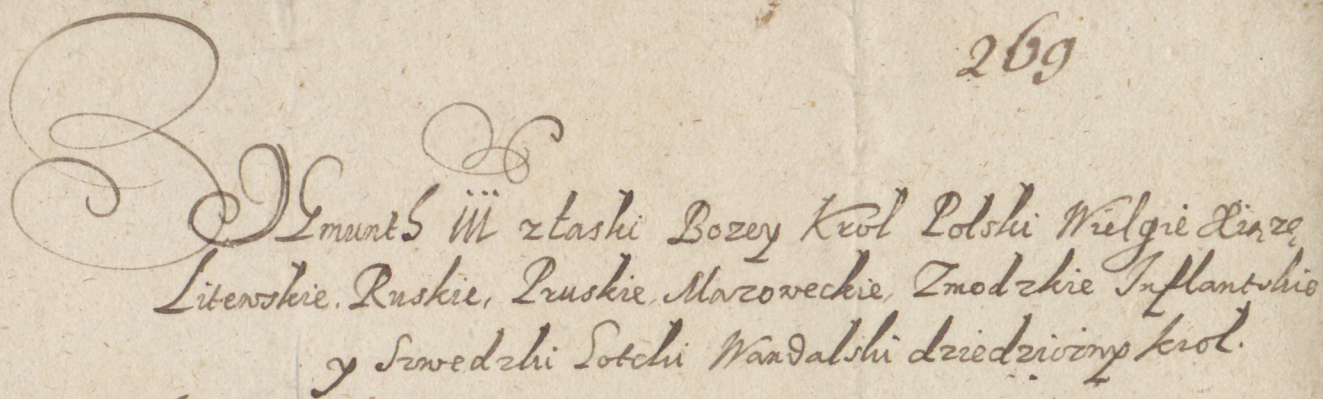 269
ZYGmunth iii z łaski Bozey Krol Polski Wielgie Xiązę
Litewskie. Ruskie, Pruskie, Mazoweckie, Zmodzkie Inflantskie
y Szwedzki Gotcki Wandalski dziedziczny krol.